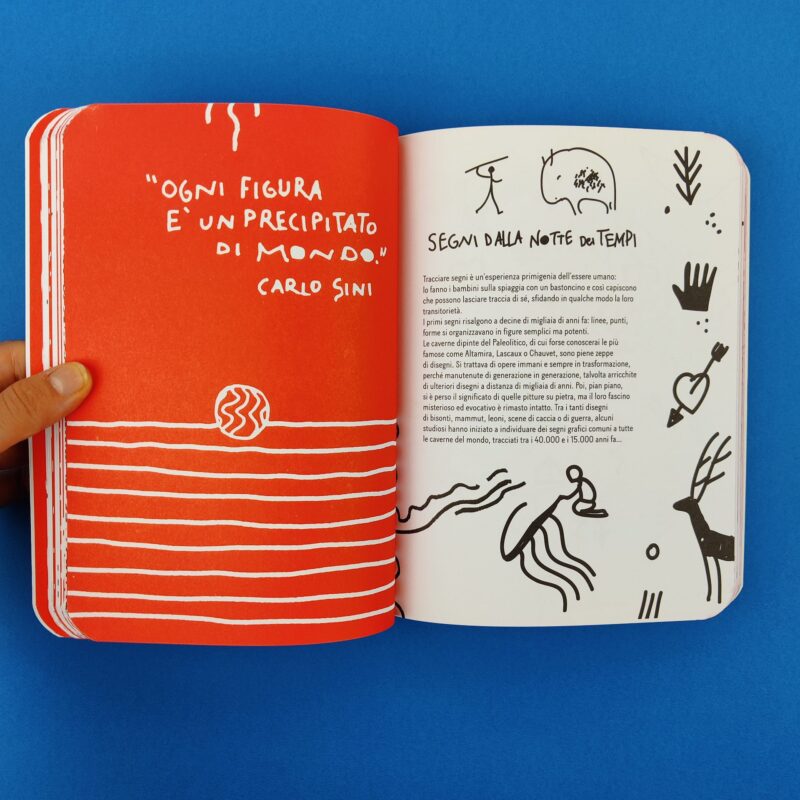 "OGNI FIGURA
E` UN PRECIPITATO
DI MONDO."
CARLO SINI
SEGNI DALLA NOTTE DEI TEMPI
Tracciare segni è un'esperienza primigenia dell'essere umano:
lo fanno i bambini sulla spiaggia con un bastoncino e così capiscono
che possono lasciare traccia di sé, sfidando in qualche modo la loro
transitorietà.
I primi segni risalgono a decine di migliaia di anni fa: linee, punti,
forme si organizzavano in figure semplici ma potenti.
Le caverne dipinte del Paleolitico, di cui forse conoscerai le più
famose come Altamira, Lascaux o Chauvet, sono piene zeppe
di disegni. Si trattava di opere immani e sempre in trasformazione,
perché manutenute di generazione in generazione, talvolta arricchite
di ulteriori disegni a distanza di migliaia di anni. Poi, pian piano,
si è perso il significato di quelle pitture su pietra, ma il loro fascino
misterioso ed evocativo è rimasto intatto. Tra i tanti disegni
di bisonti, mammut, leoni, scene di caccia o di guerra, alcuni
studiosi hanno iniziato a individuare dei segni grafici comuni a tutte
le caverne del mondo, tracciati tra i 40.000 e i 15.000 anni fa...